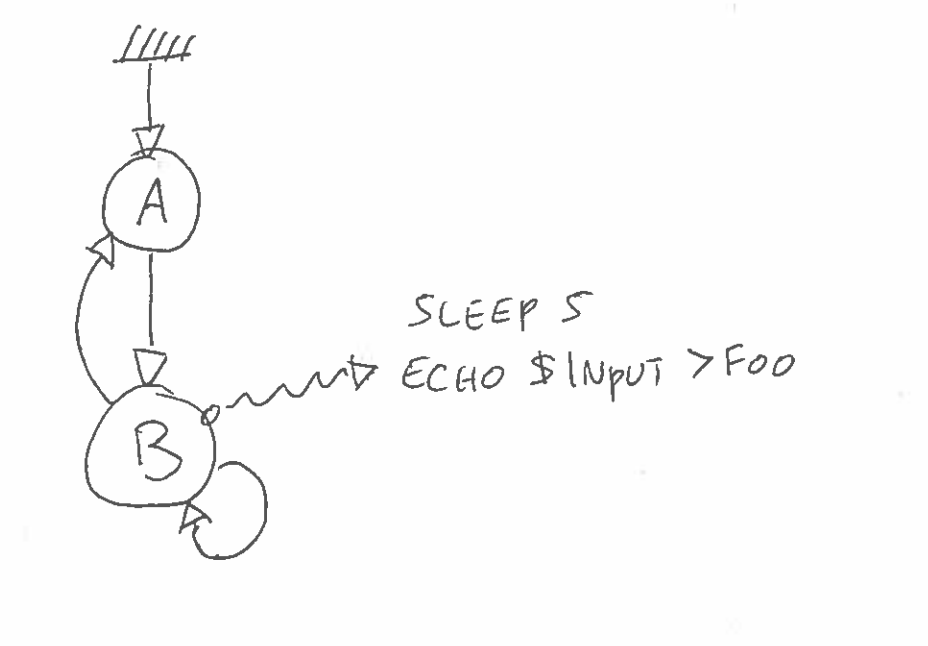 A
SLEEP 5
ECHO $INPUT >FOO
B